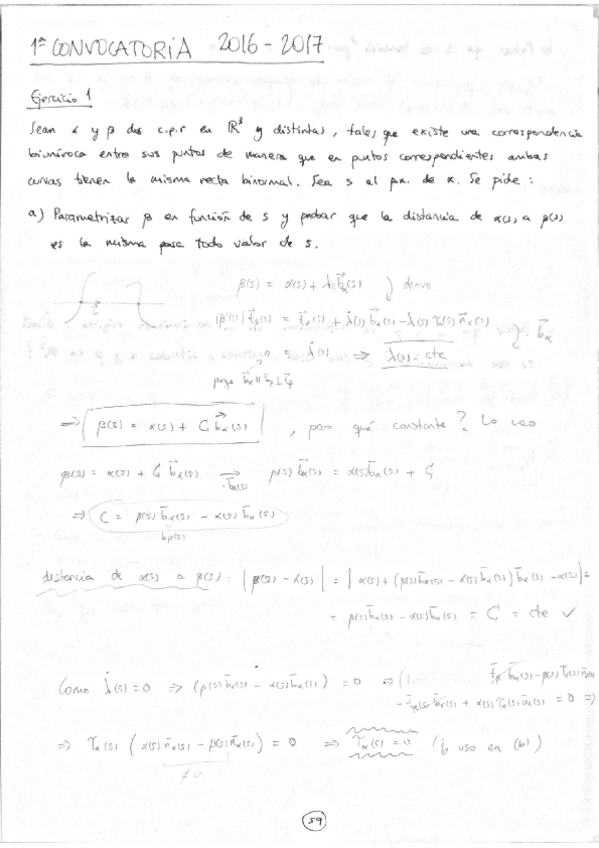 1ª CONVOCATORIA 2016-2017
Ejercicio 1
Sean α y β dos c.p.r en ℝ³ y distintas, tales que existe una correspondencia
biunívoca entre sus puntos de manera que en puntos correspondientes ambas
curvas tienen la misma recta binormal. Sea s el p.n. de α. Se pide:
a) Parametrizar β en función de s y probar que la distancia de α(s) a β(s)
es la misma para todo valor de s.
β(s) = α(s) + λ(s) b⃗α(s) derivo
|β'(s)| t⃗β(s) = t⃗α(s) + λ̇(s) b⃗α(s) - λ(s) τα(s) n⃗α(s)
· b⃗α
0 = λ̇(s) ⇒ λ(s) = cte
porque b⃗α ∥ b⃗β ⊥ t⃗β
⇒ β(s) = α(s) + C b⃗α(s) , pero qué constante? Lo veo
β(s) = α(s) + C b⃗α(s) → β(s) b⃗α(s) = α(s) b⃗α(s) + C
·b⃗α(s)
⇒ C = β(s) b⃗α(s) - α(s) b⃗α(s)
bβ(s)
distancia de α(s) a β(s): |β(s) - α(s)| = |α(s) + (β(s) b⃗α(s) - α(s) b⃗α(s)) b⃗α(s) - α(s)| =
= β(s) b⃗α(s) - α(s) b⃗α(s) = C = cte ✓
Como λ̇(s) = 0 ⇒ (β(s) b⃗α(s) - α(s) b⃗α(s))˙ = 0 ⇒ ( t⃗β b⃗α(s) - β(s) τα(s) n⃗α(s)
- t⃗α(s) b⃗α(s) + α(s) τα(s) n⃗α(s) = 0 ⇒
⇒ τα(s) (α(s) n⃗α(s) - β(s) n⃗α(s)) = 0 ⇒ τα(s) = 0 (lo uso en (b))
≠0
59